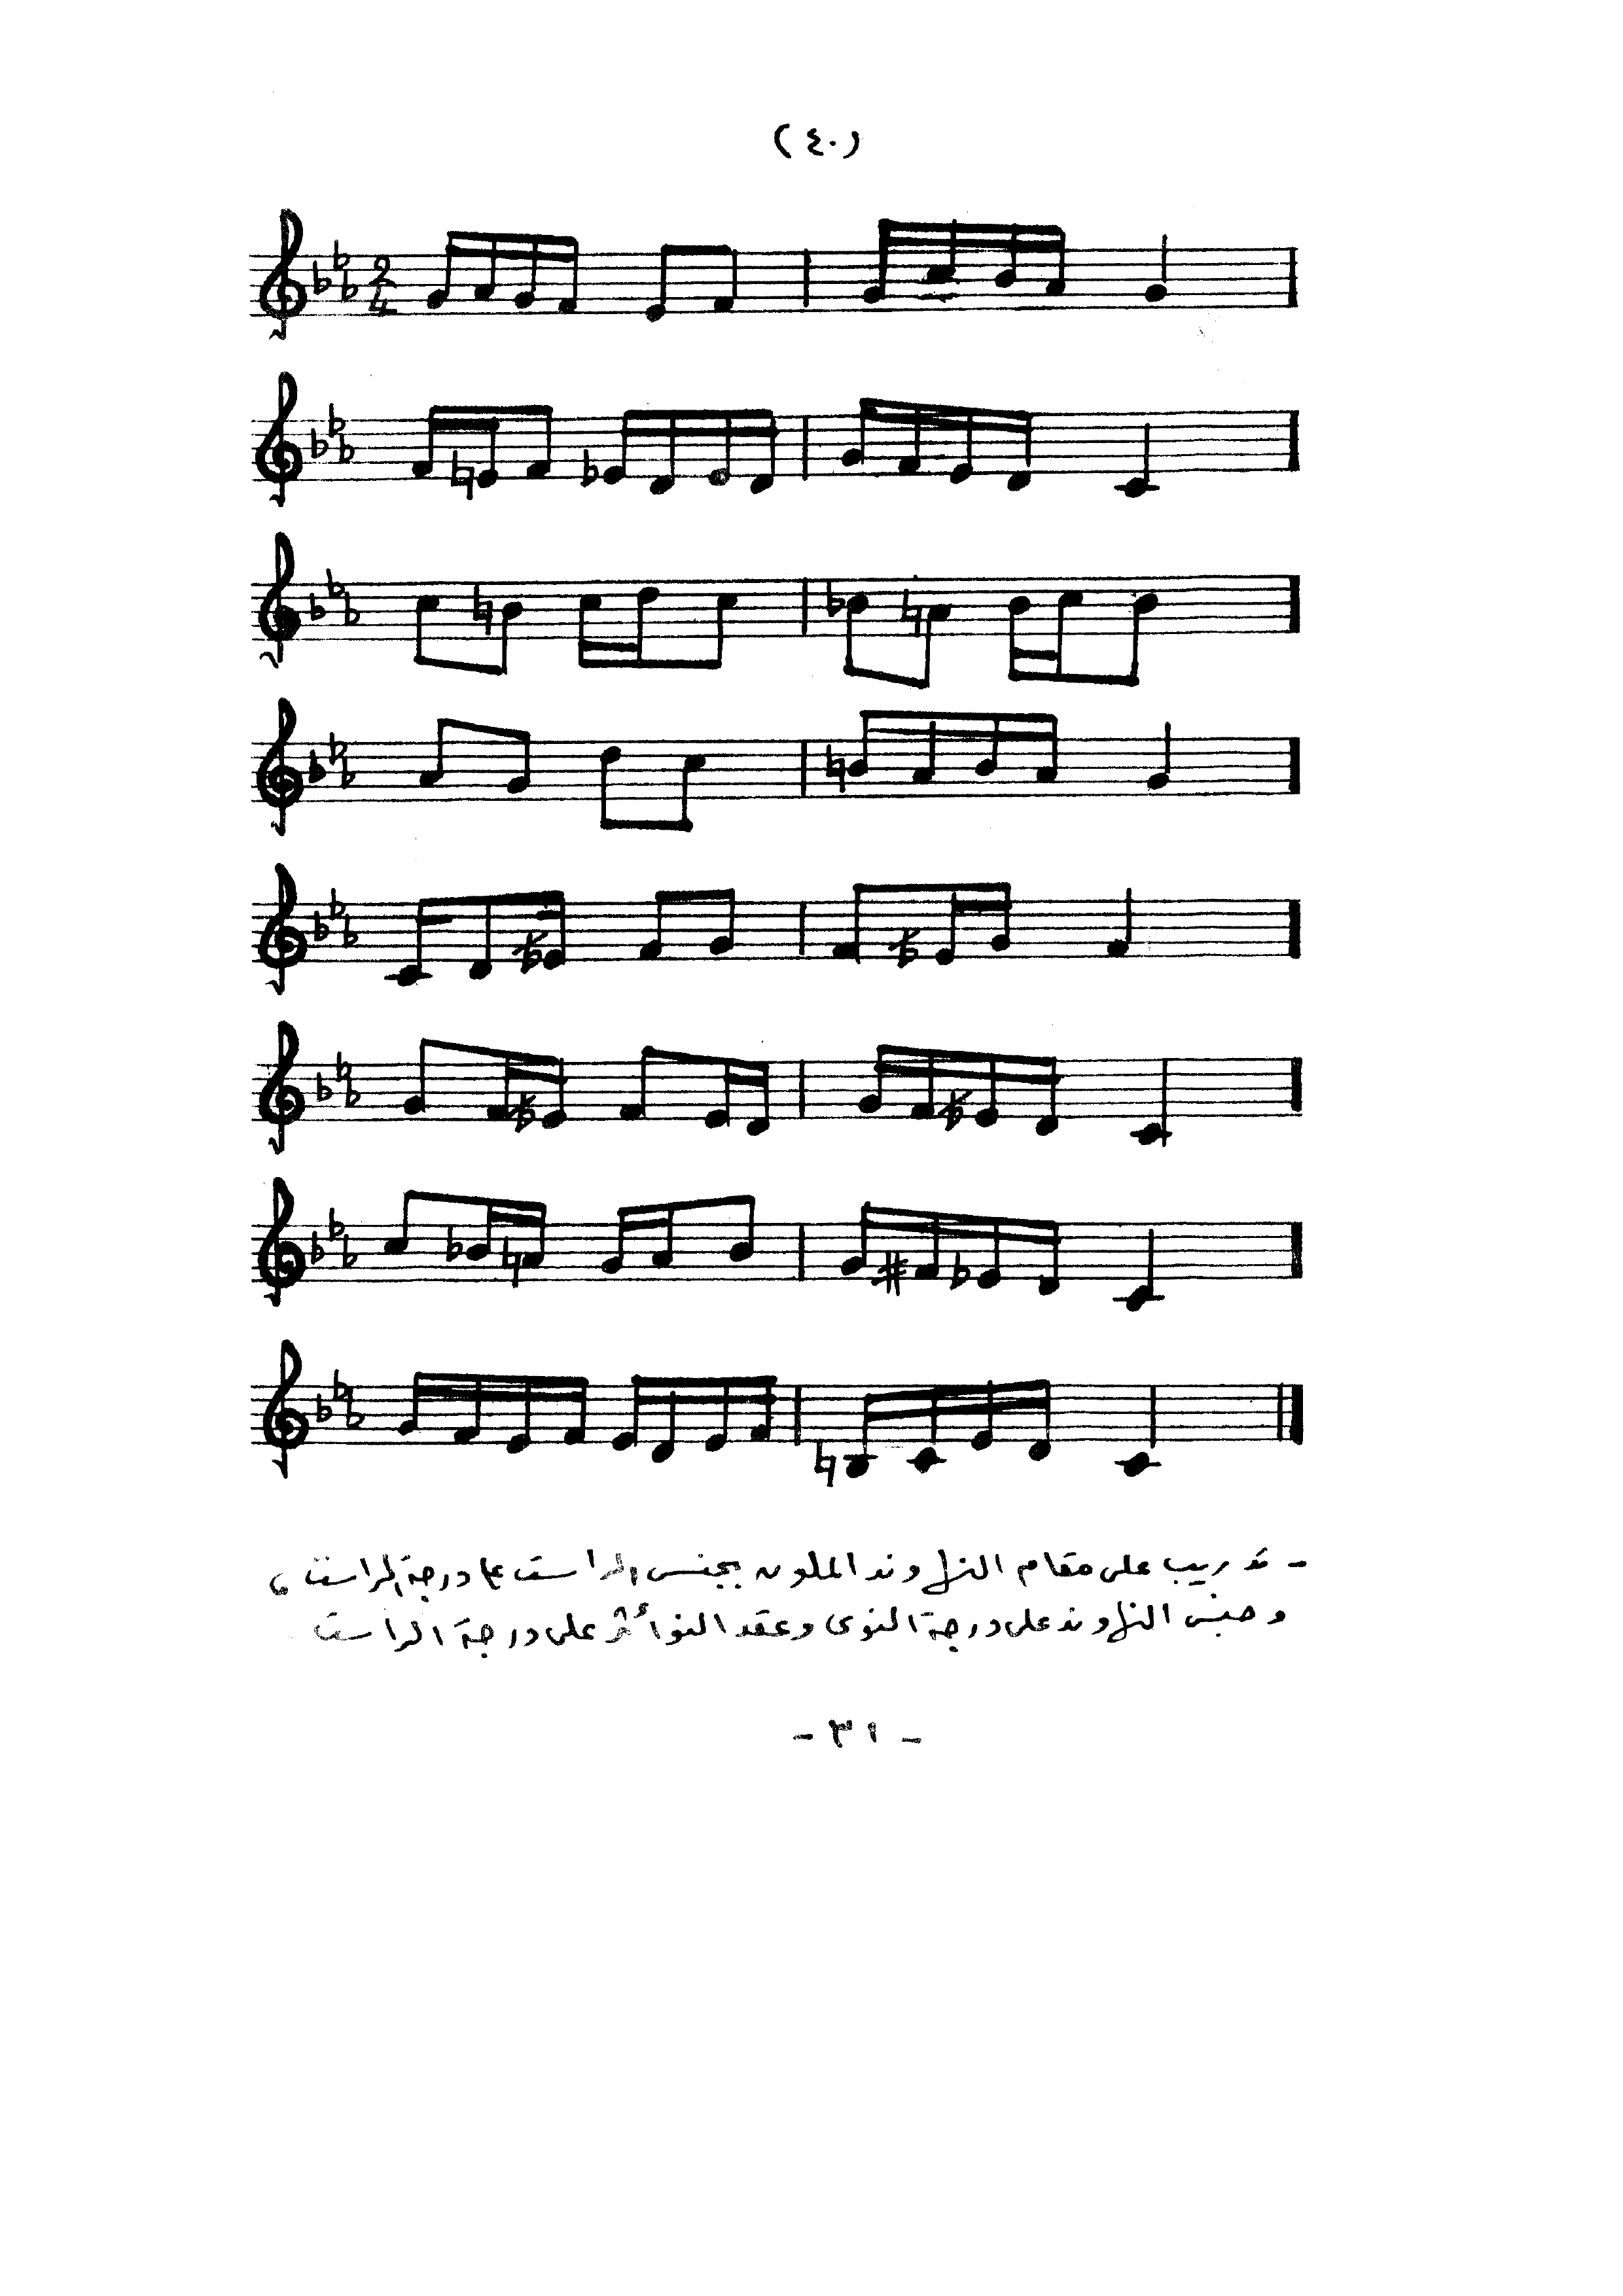 (٤٠)
2
4
- تدريب على مقام النهاوند الملون بجنس الراست على درجة الراست ،
وجنس النهاوند على درجة النوى وعقد النوأثر على درجة الراست
- ٣١ -